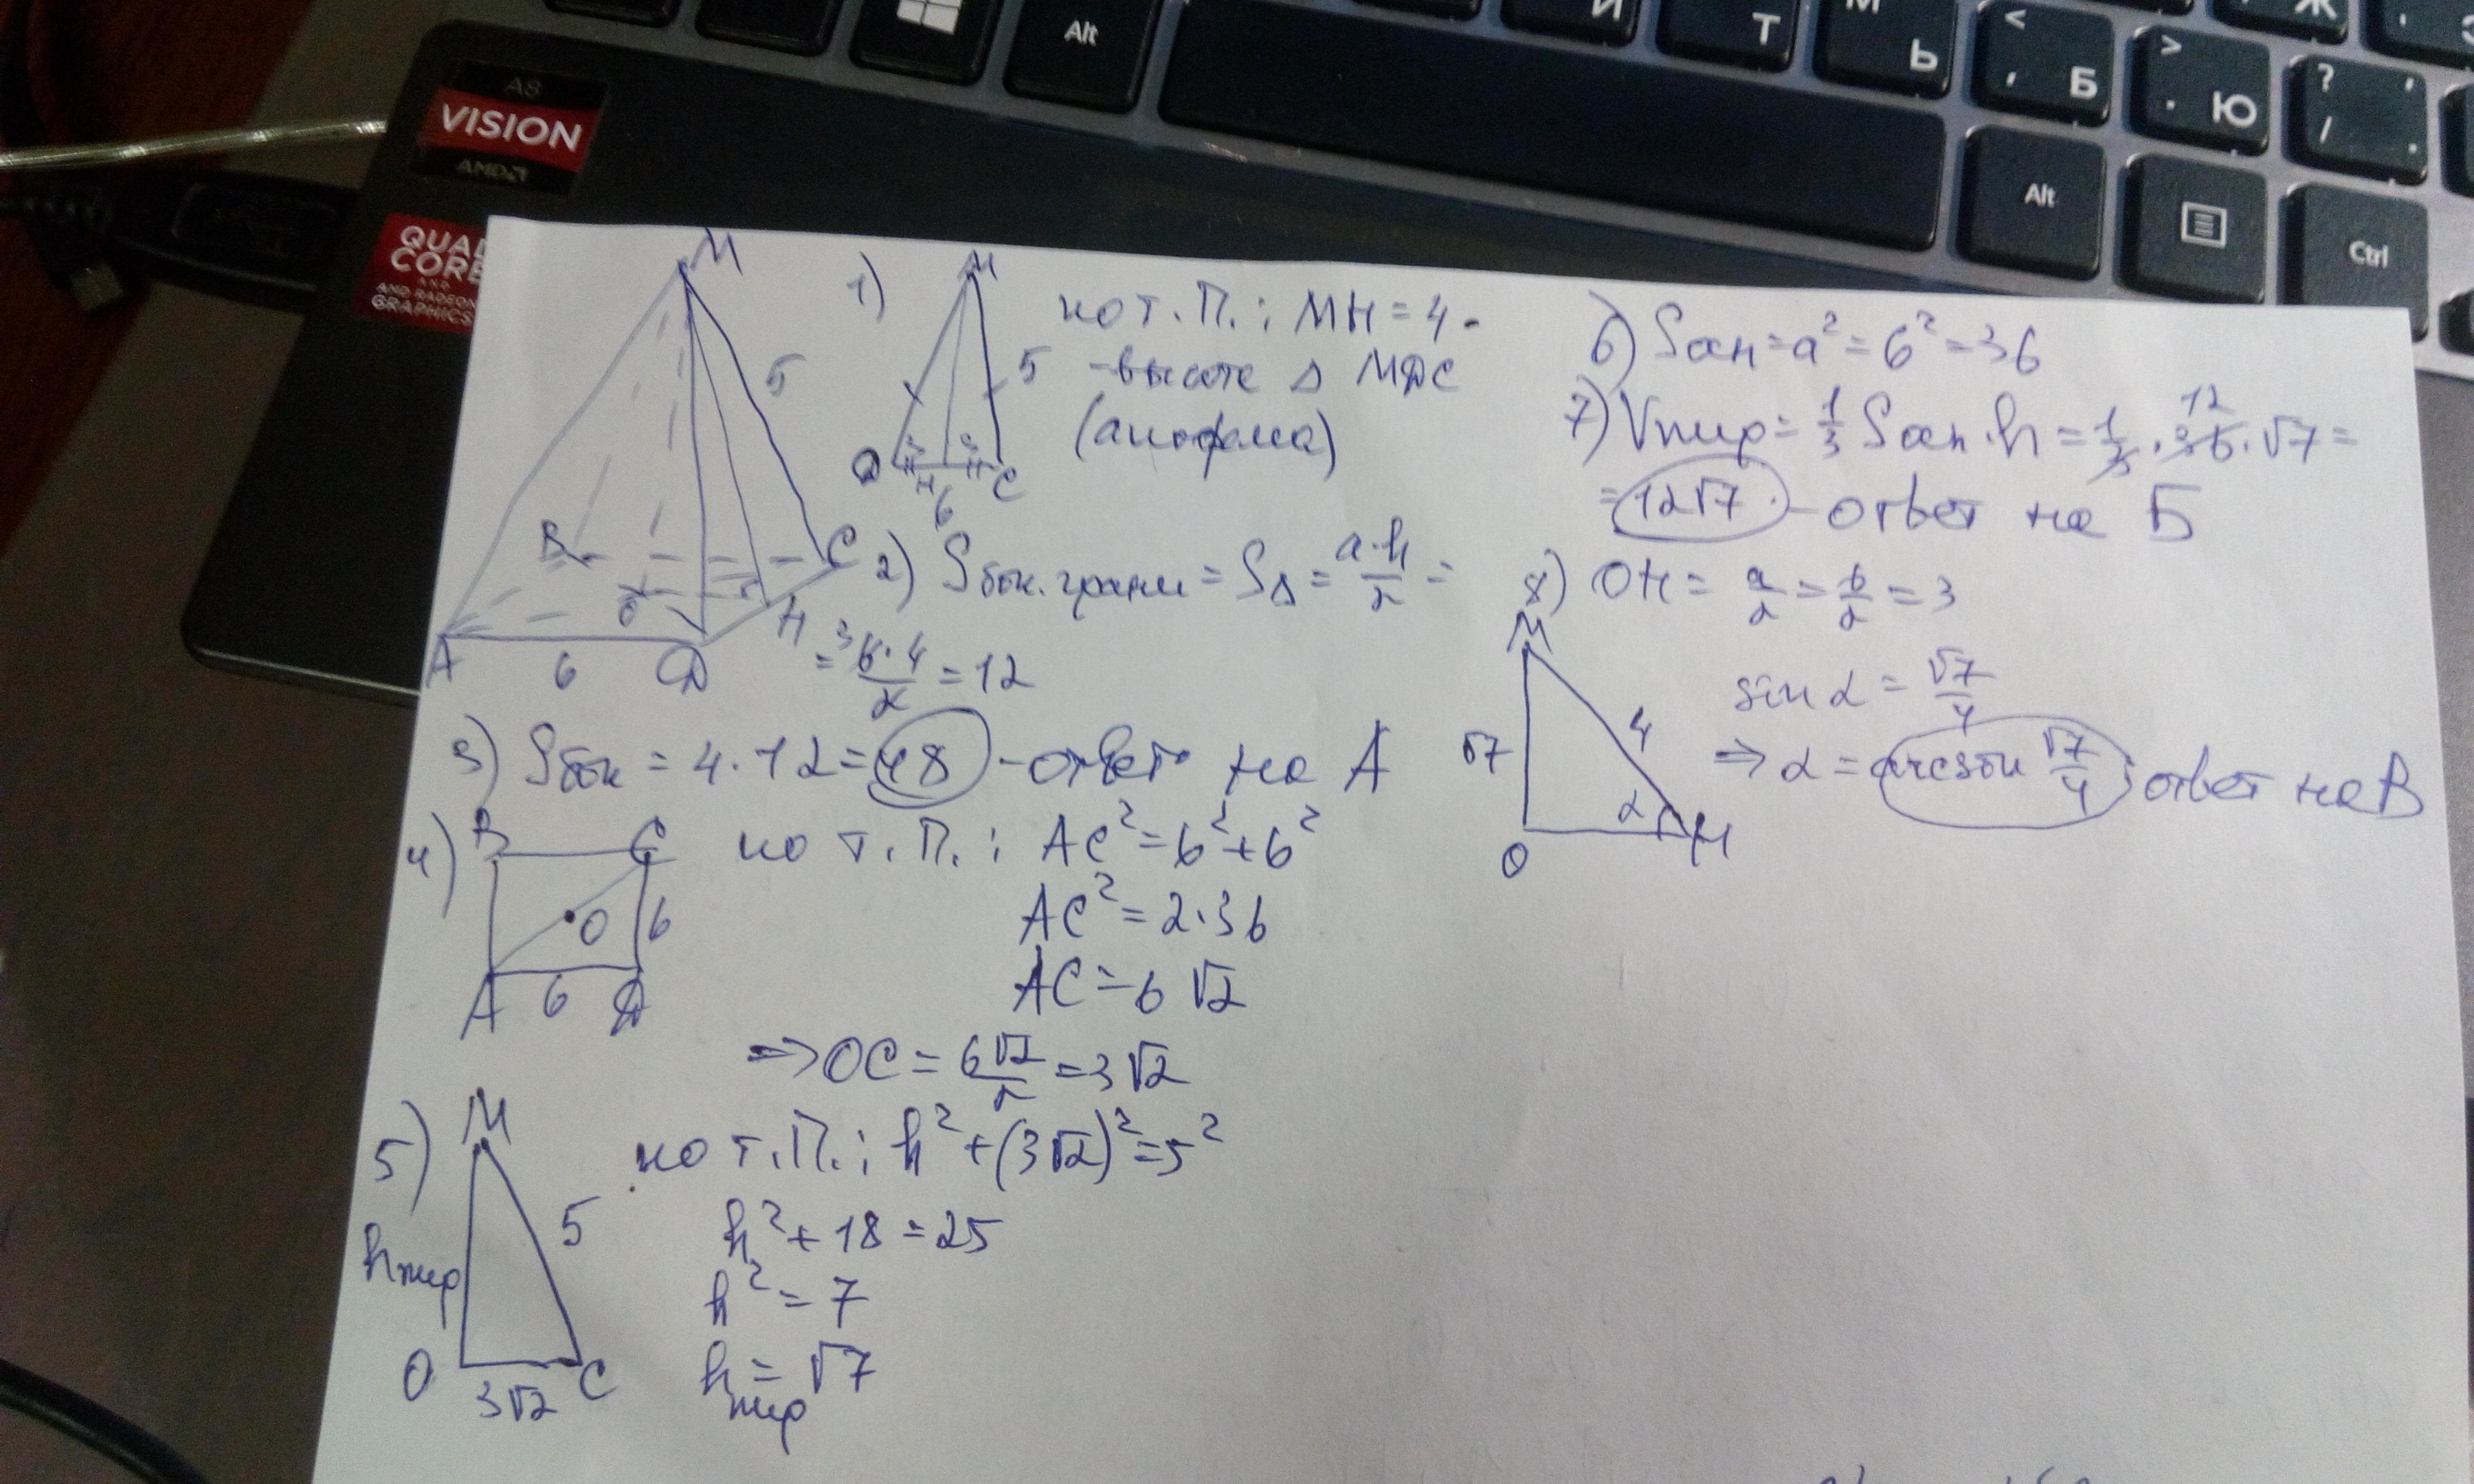 Alt
И
Т
М
Ь
<
,
Б
>
.
Ю
?
/
.
Ж
Alt
Ctrl
A8
VISION
AMD
QUAD
CORE
AND
AND RADEON
GRAPHICS
M
5
B
C
O
H
A
6
D
1)
M
5
3
3
D
H
C
6
по т. П.: MH = 4 -
- высота Δ MDC
(апофема)
2) Sбок. грани = SΔ = a·h/2 =
= 6·4/2 = 12
3) Sбок = 4·12 = 48 - ответ на А
4)
B
C
O
6
A
6
D
по т. П.: AC² = 6² + 6²
AC² = 2·36
AC = 6√2
=> OC = 6√2/2 = 3√2
5)
M
hпир
5
O
3√2
C
по т. П.: h² + (3√2)² = 5²
h² + 18 = 25
h² = 7
hпир = √7
6) Sосн = a² = 6² = 36
7) Vпир = 1/3 Sосн·h = 1/3·36·√7 =
12
= 12√7 - ответ на Б
8) OH = a/2 = 6/2 = 3
M
√7
4
α
O
H
sin α = √7/4
=> α = arcsin √7/4 ответ на В